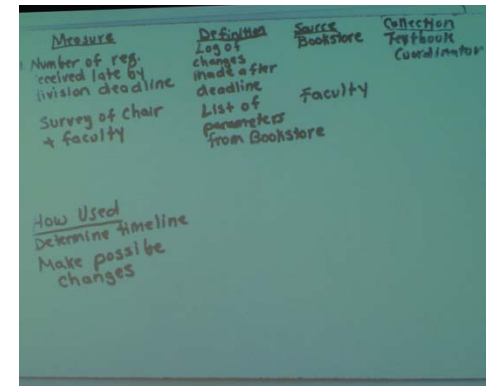 Measure
Number of req.
received late by
division deadline
Survey of Chair
+ faculty
Definition
Log of
changes
made after
deadline
List of
parameters
from Bookstore
Source
Bookstore
Faculty
Collection
Textbook
Coordinator
How Used
Determine timeline
Make possibe
changes